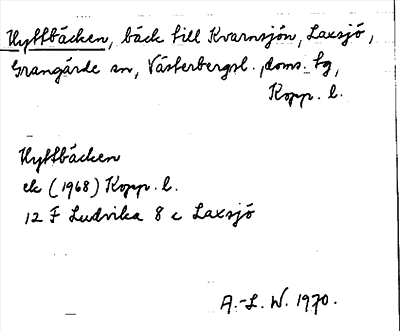 Hyttbäcken, bäck till Kvarnsjön, Laxsjö,
Grangärde sn, Västerbergsl. doms. tg,
Kopp. l.
Hyttbäcken
ek (1968) Kopp. l.
12 F Ludvika 8 c Laxsjö
A.-L. W. 1970.